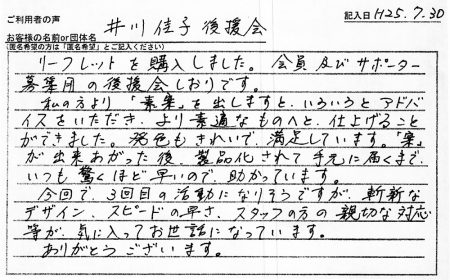 ご利用者の声
記入日 H25.7.30
お客様の名前or団体名 井川佳子後援会
(匿名希望の方は「匿名希望」とご記入ください)
リーフレットを購入しました。会員及びサポーター
募集用の後援会しおりです。
私の方より「素案」を出しますと、いろいろとアドバ
イスをいただき、より素適なものへと、仕上げること
ができました。発色もきれいで、満足しています。「案」
が出来あがった後、製品化されて手元に届くまで、
いつも驚くほど早いので、助かっています。
今回で、3回目の活動になりそうですが、斬新な
デザイン、スピードの早さ、スタッフの方の親切な対応
等が、気に入ってお世話になっています。
ありがとうございます。